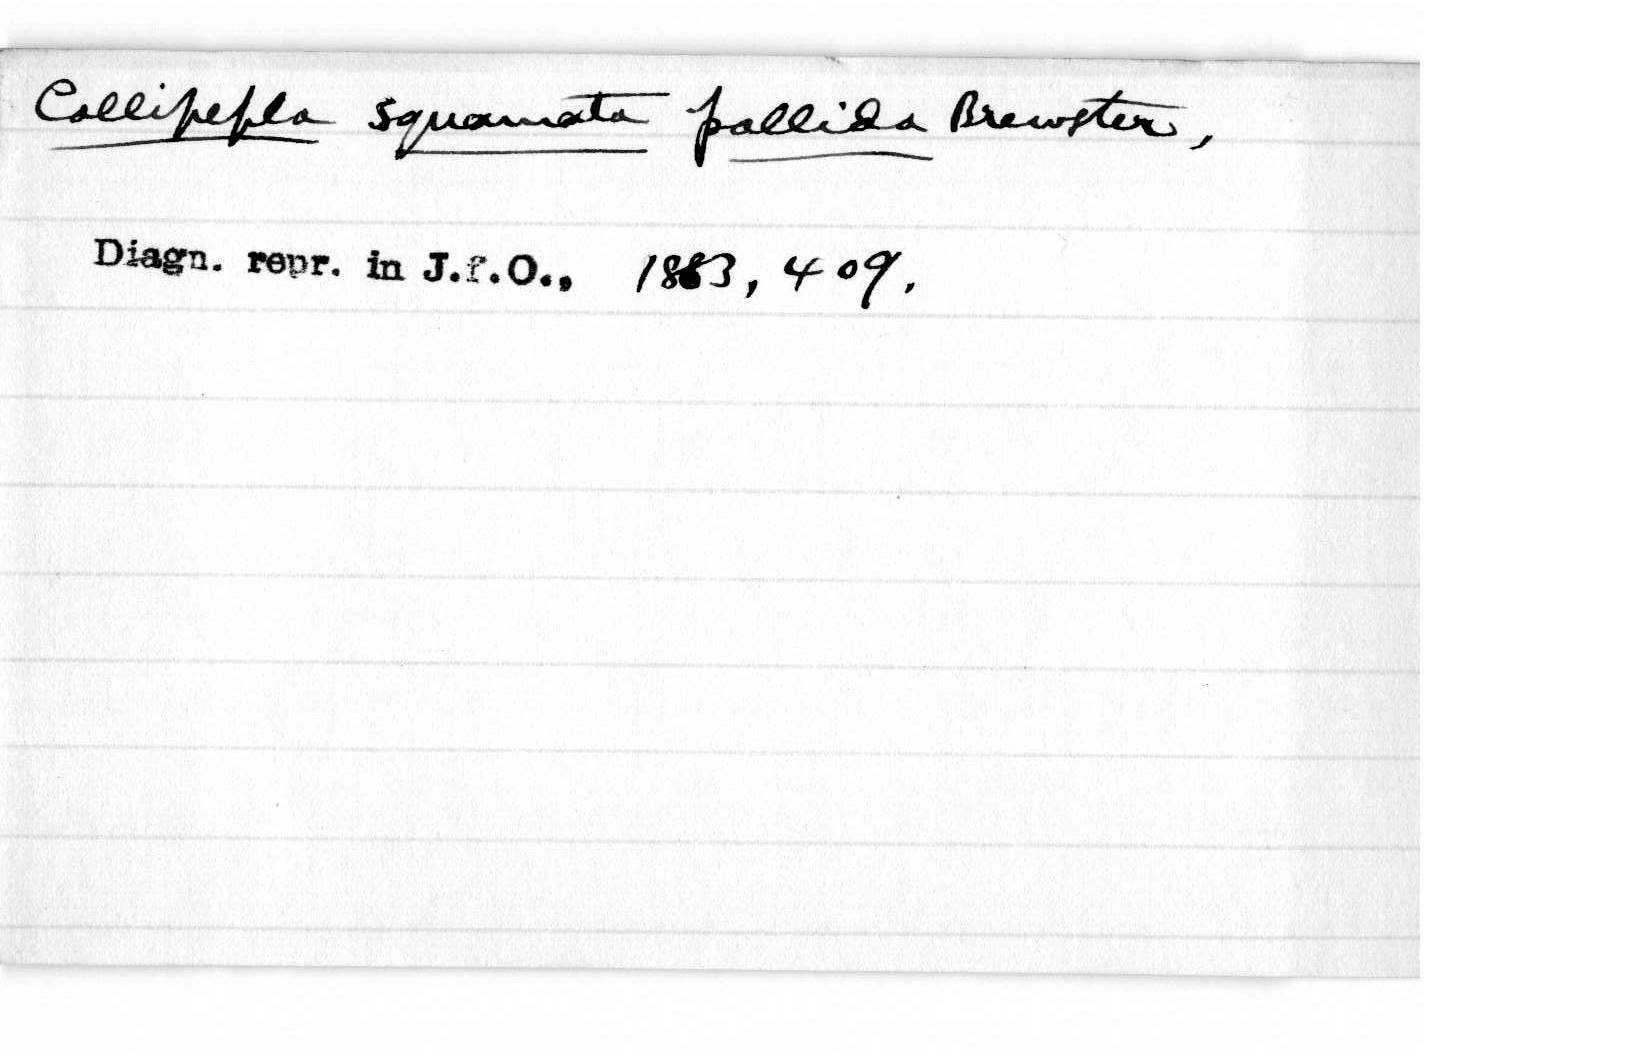 Callipepla squamata pallida Brewster,
Diagn. repr. in J.f.O., 1883, 409.